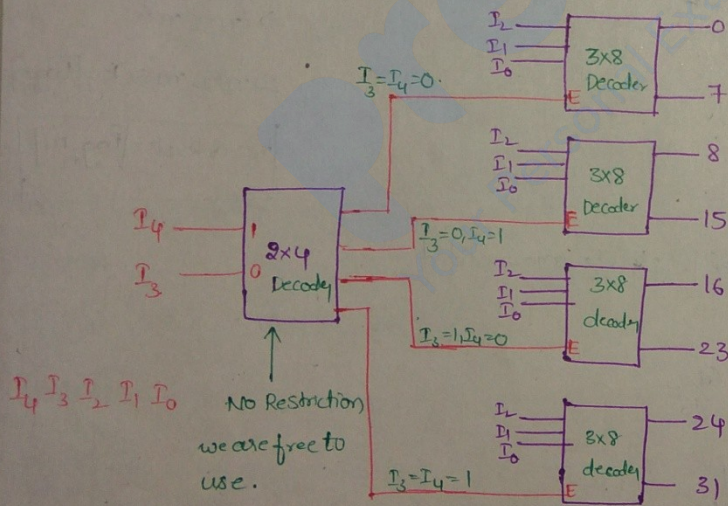 I2
I1
I0
3x8
Decoder
E
0
7
I3=I4=0.
I2
I1
I0
3x8
Decoder
E
8
15
I4
I3
1
0
2x4
Decoder
I3=0,I4=1
I2
I1
I0
3x8
decoder
E
16
23
I3=1,I4=0
I4 I3 I2 I1 I0
No Restriction
we are free to
use.
I2
I1
I0
3x8
decoder
E
24
31
I3=I4=1